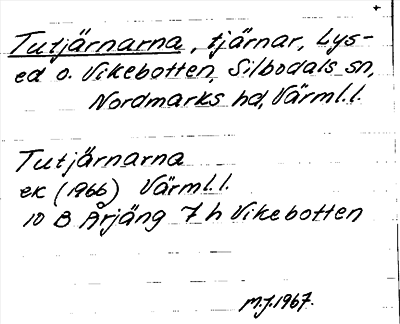 Tutjärnarna, tjärnar, Lys-
ed o. Vikebotten, Silbodals sn,
Nordmarks hd, Värml.l.
Tutjärnarna
ek (1966) Värml.l.
10 B Årjäng 7 h Vikebotten
M.J.1967.